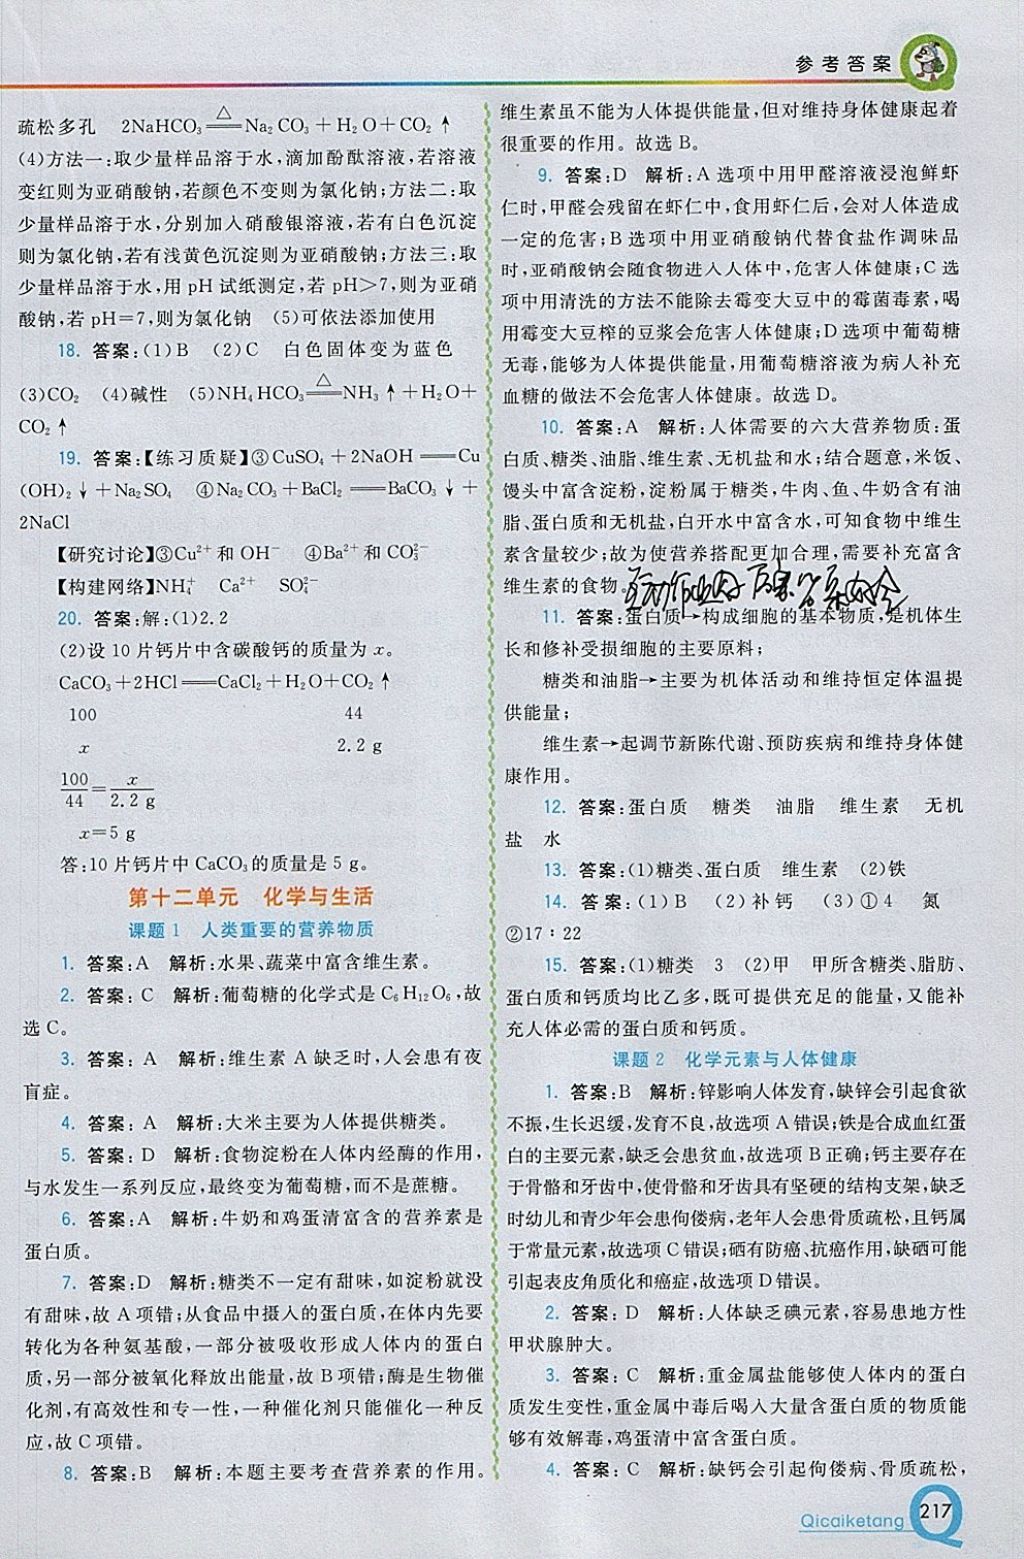 参考答案
疏松多孔　2NaHCO₃ ══△══ Na₂CO₃＋H₂O＋CO₂↑
(4)方法一:取少量样品溶于水,滴加酚酞溶液,若溶液
变红则为亚硝酸钠,若颜色不变则为氯化钠;方法二:取
少量样品溶于水,分别加入硝酸银溶液,若有白色沉淀
则为氯化钠,若有浅黄色沉淀则为亚硝酸钠;方法三:取
少量样品溶于水,用 pH 试纸测定,若 pH＞7,则为亚硝
酸钠,若 pH＝7,则为氯化钠　(5)可依法添加使用
18. 答案:(1)B　(2)C　白色固体变为蓝色
(3)CO₂　(4)碱性　(5)NH₄HCO₃ ══△══ NH₃↑＋H₂O＋
CO₂↑
19. 答案:【练习质疑】③CuSO₄＋2NaOH ══ Cu
(OH)₂↓＋Na₂SO₄　④Na₂CO₃＋BaCl₂ ══ BaCO₃↓＋
2NaCl
【研究讨论】③Cu²⁺和 OH⁻　④Ba²⁺和 CO₃²⁻
【构建网络】NH₄⁺　Ca²⁺　SO₄²⁻
20. 答案:解:(1)2.2
(2)设 10 片钙片中含碳酸钙的质量为 x。
CaCO₃＋2HCl ══ CaCl₂＋H₂O＋CO₂↑
100　44
x　2.2 g
100/44＝x/2.2 g
x＝5 g
答:10 片钙片中 CaCO₃的质量是 5 g。
第十二单元　化学与生活
课题 1　人类重要的营养物质
1. 答案:A　解析:水果、蔬菜中富含维生素。
2. 答案: C　解析:葡萄糖的化学式是 C₆H₁₂O₆,故
选 C。
3. 答案: A　解析:维生素 A 缺乏时,人会患有夜
盲症。
4. 答案: A　解析:大米主要为人体提供糖类。
5. 答案: D　解析:食物淀粉在人体内经酶的作用,
与水发生一系列反应,最终变为葡萄糖,而不是蔗糖。
6. 答案:A　解析:牛奶和鸡蛋清富含的营养素是
蛋白质。
7. 答案:D　解析:糖类不一定有甜味,如淀粉就没
有甜味,故 A 项错;从食品中摄入的蛋白质,在体内先要
转化为各种氨基酸,一部分被吸收形成人体内的蛋白
质,另一部分被氧化释放出能量,故 B 项错;酶是生物催
化剂,有高效性和专一性,一种催化剂只能催化一种反
应,故 C 项错。
8. 答案:B　解析:本题主要考查营养素的作用。
维生素虽不能为人体提供能量,但对维持身体健康起着
很重要的作用。故选 B。
9. 答案:D　解析:A 选项中用甲醛溶液浸泡鲜虾
仁时,甲醛会残留在虾仁中,食用虾仁后,会对人体造成
一定的危害;B 选项中用亚硝酸钠代替食盐作调味品
时,亚硝酸钠会随食物进入人体中,危害人体健康;C 选
项中用清洗的方法不能除去霉变大豆中的霉菌毒素,喝
用霉变大豆榨的豆浆会危害人体健康;D 选项中葡萄糖
无毒,能够为人体提供能量,用葡萄糖溶液为病人补充
血糖的做法不会危害人体健康。故选 D。
10. 答案:A　解析:人体需要的六大营养物质:蛋
白质、糖类、油脂、维生素、无机盐和水;结合题意,米饭、
馒头中富含淀粉,淀粉属于糖类,牛肉、鱼、牛奶含有油
脂、蛋白质和无机盐,白开水中富含水,可知食物中维生
素含量较少;故为使营养搭配更加合理,需要补充富含
维生素的食物
11. 答案:蛋白质→构成细胞的基本物质,是机体生
长和修补受损细胞的主要原料;
糖类和油脂→主要为机体活动和维持恒定体温提
供能量;
维生素→起调节新陈代谢、预防疾病和维持身体健
康作用。
12. 答案:蛋白质　糖类　油脂　维生素　无机
盐　水
13. 答案:(1)糖类、蛋白质　维生素　(2)铁
14. 答案:(1)B　(2)补钙　(3)①4　氮
②17∶22
15. 答案:(1)糖类　3　(2)甲　甲所含糖类、脂肪、
蛋白质和钙质均比乙多,既可提供充足的能量,又能补
充人体必需的蛋白质和钙质。
课题 2　化学元素与人体健康
1. 答案:B　解析:锌影响人体发育,缺锌会引起食欲
不振,生长迟缓,发育不良,故选项 A 错误;铁是合成血红蛋
白的主要元素,缺乏会患贫血,故选项 B 正确;钙主要存在
于骨骼和牙齿中,使骨骼和牙齿具有坚硬的结构支架,缺乏
时幼儿和青少年会患佝偻病,老年人会患骨质疏松,且钙属
于常量元素,故选项 C 错误;硒有防癌、抗癌作用,缺硒可能
引起表皮角质化和癌症,故选项 D 错误。
2. 答案: D　解析:人体缺乏碘元素,容易患地方性
甲状腺肿大。
3. 答案: C　解析:重金属盐能够使人体内的蛋白
质发生变性,重金属中毒后喝入大量含蛋白质的物质能
够有效解毒,鸡蛋清中富含蛋白质。
4. 答案: C　解析:缺钙会引起佝偻病、骨质疏松,
Qicaiketang 217